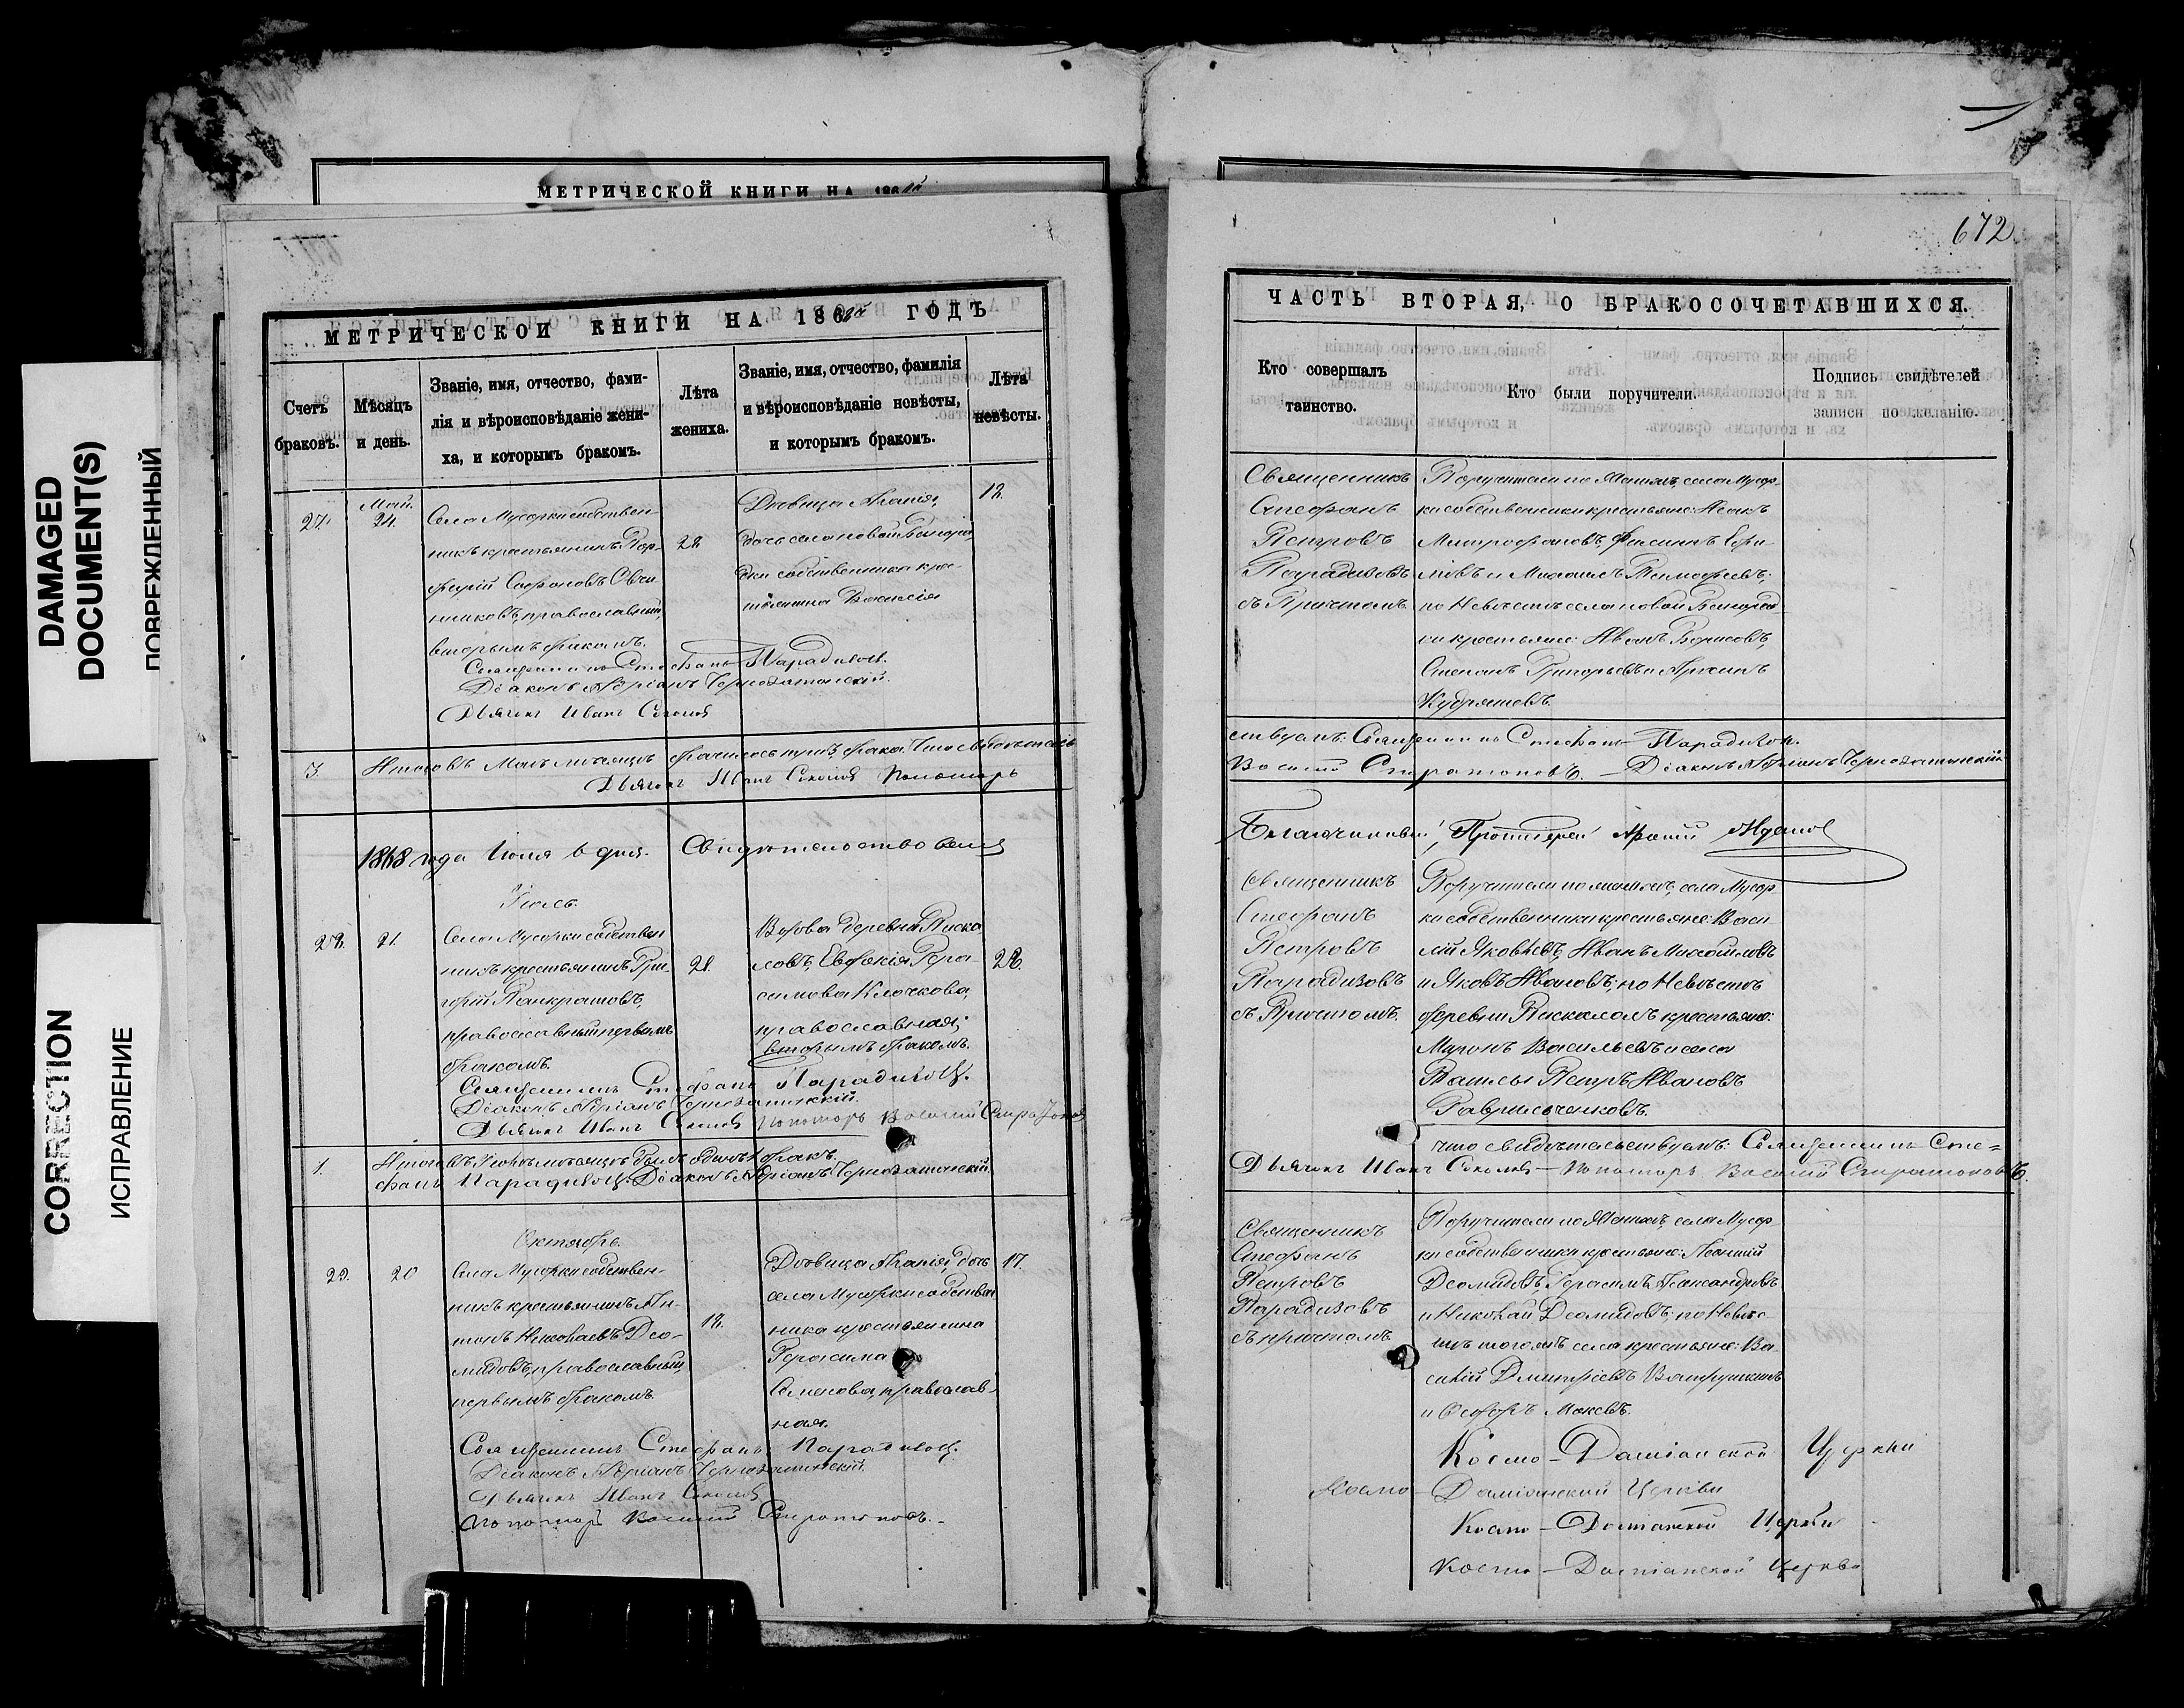 DAMAGED
DOCUMENT(S)
ПОВРЕЖДЕННЫЙ
CORRECTION
ИСПРАВЛЕНИЕ
МЕТРИЧЕСКОЙ КНИГИ НА
672
МЕТРИЧЕСКОЙ КНИГИ НА 1868й ГОДЪ
Счетъ браковъ.
Мѣсяцъ и день.
Званіе, имя, отчество, фами-
лія и вѣроисповѣданіе жени-
ха, и которымъ бракомъ.
Лѣта жениха.
Званіе, имя, отчество, фамилія
и вѣроисповѣданіе невѣсты,
и которымъ бракомъ.
Лѣта невѣсты.
27.
Май.
24.
Села Мусорки собствен-
никъ крестьянинъ Пор-
фирій Софоновъ Овчи-
нниковъ, православный,
вторымъ бракомъ.
28
Дѣвица
дочь села новой Бинарад
ки собственника крес-
тьянина Василія
18.
Священникъ Стефанъ Парадизовъ.
Діаконъ Адріанъ
Дьячекъ Иванъ Соколовъ
3.
Итого въ Маѣ мѣсяцѣ брачилось три брака. Что свидѣтель
Дьячекъ Иванъ Соколовъ Пономарь
1868 года Іюля 6 дня. Свидѣтельствовалъ
Іюль.
28.
21.
Села Мусорки собствен
никъ крестьянинъ Гри-
горій Панкратовъ,
православный первымъ
бракомъ.
21.
Вдова деревни Писка
ловъ, Евдокія Гера-
симова Клочкова,
православная,
вторымъ бракомъ.
28.
Священникъ Стефанъ Парадизовъ.
Діаконъ Адріанъ
Дьячекъ Иванъ Соколовъ Пономарь Василій Спиратоновъ
1.
Итого въ Іюлѣ мѣсяцѣ былъ одинъ бракъ.
фанъ Парадизовъ. Діаконъ Адріанъ
Октябрь.
29.
20
Села Мусорки собствен-
никъ крестьянинъ Ан-
тонъ Николаевъ Део-
мидовъ, православный,
первымъ бракомъ.
18.
Дѣвица дочь
села Мусорки собствен
ника крестьянина
Герасима
Семенова, православ-
ная.
17.
Священникъ Стефанъ Парадизовъ.
Діаконъ Адріанъ
Дьячекъ Иванъ Соколовъ
Пономарь Василій Спиратоновъ.
ЧАСТЬ ВТОРАЯ, О БРАКОСОЧЕТАВШИХСЯ.
Кто совершалъ таинство.
Кто были поручители.
Подпись свидѣтелей записи по желанію.
Священникъ
Стефанъ
Петровъ
Парадизовъ
съ Причтомъ.
Поручители по Женихѣ, села Мусор
ки собственники крестьяне: Исакъ
Митрофановъ, Ефи-
мовъ и Михаилъ Тимофеевъ;
по Невѣстѣ села новой Бинарад
ки крестьяне: Иванъ Борисовъ,
Степанъ Григорьевъ и
Кудряшевъ.
ствуемъ: Священникъ Стефанъ Парадизовъ.
Василій Спиратоновъ. Діаконъ Адріанъ
Благочинный, Протоіерей
Священникъ
Стефанъ
Петровъ
Парадизовъ
съ Причтомъ.
Поручители по женихѣ, села Мусор
ки собственники крестьяне: Васи
лій Яковлевъ, Иванъ Михайловъ
и Яковъ Ивановъ; по Невѣстѣ
деревни Пискаловъ крестьяне:
Миронъ Васильевъ и села
Ташлы Петръ Ивановъ
Гавриленковъ.
что свидѣтельствуемъ: Священникъ Сте=
Дьячекъ Иванъ Соколовъ — Пономарь Василій Спиратоновъ.
Священникъ
Стефанъ
Петровъ
Парадизовъ
съ причтомъ
Поручители по Женихѣ, села Мусор
ки собственники крестьяне:
Деомидовъ, Герасимъ Александровъ
и Николай Деомидовъ; по Невѣс-
тѣ тогожъ села крестьяне: Ва-
силій Дмитріевъ
и Федоръ
Космо-Даміанской Церкви
Космо-Даміанской Церкви
Космо-Даміанской Церкви
Космо-Даміанской Церкви